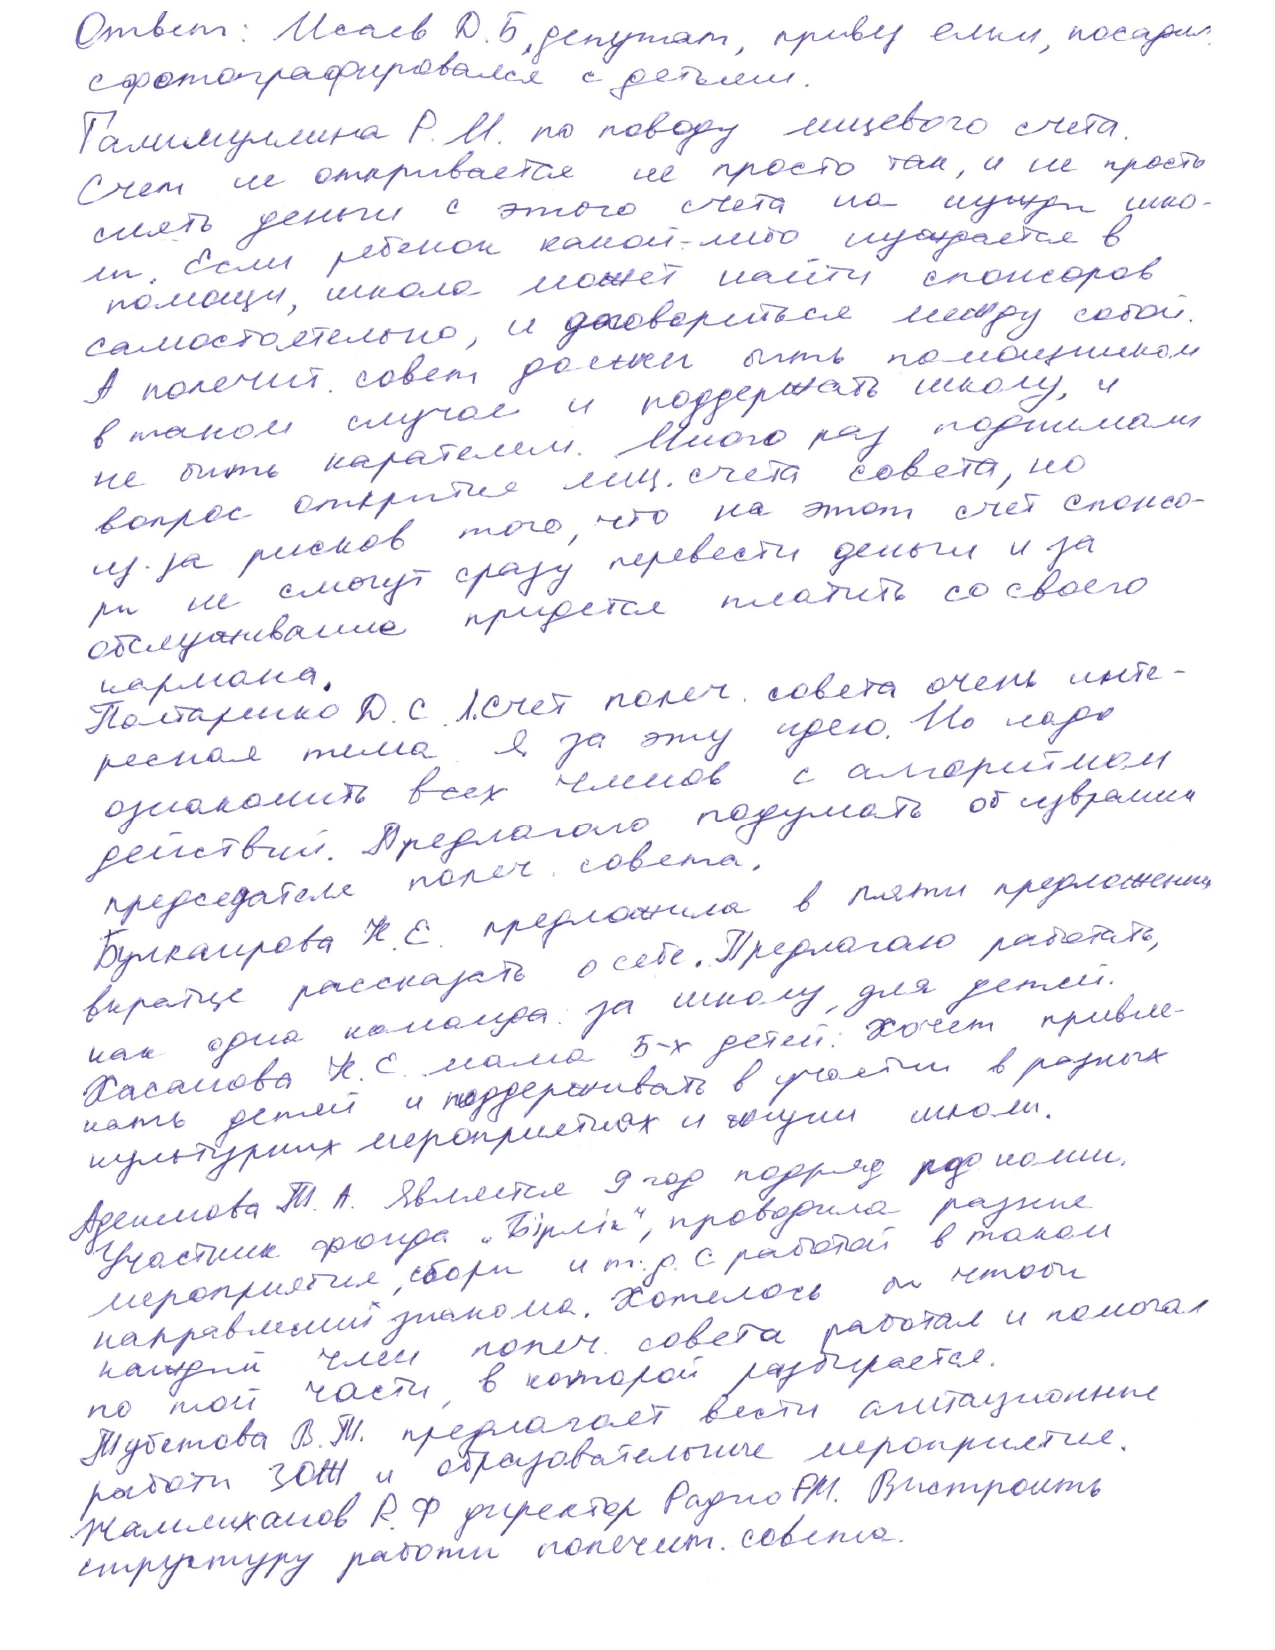 Ответ: Исаев Д.Б., депутат, привез елки, посадил
сфотографировался с детьми.
Галимуллина Р. И. по поводу лицевого счета.
Счет не открывается не просто так, и не просто
снять деньги с этого счета на нужды шко-
лы. Если ребенок какой-либо нуждается в
помощи, школа может найти спонсоров
самостоятельно, и договориться между собой.
А попечит. совет должен быть помощником
в таком случае и поддержать школу, и
не быть карателем. Много раз поднимали
вопрос открытия лиц. счета совета, но
из-за рисков того, что на этот счет спонсо-
ры не смогут сразу перевести деньги и за
обслуживание придется платить со своего
кармана.
Полтаренко Д. С. 1. Счет попеч. совета очень инте-
ресная тема я за эту идею. Но надо
ознакомить всех членов с алгоритмом
действий. Предлагаю подумать об избрании
председателя попеч. совета.
Булкаирова К. Е. предложила в пяти предложениях
вкратце рассказать о себе. Предлагаю работать,
как одна команда за школу, для детей.
Хасанова К. Е. мама 5-х детей. Хочет привле-
кать детей и поддерживать в участии в разных
культурных мероприятиях и жизни школы.
Аденмова Т. А. Является 9 год подряд род комит.
Участник фонда „Бірлік", проводила разные
мероприятия, сборы и т. д. С работой в таком
направлений знакома. Хотелось бы чтобы
каждый член попеч. совета работал и помогал
по той части, в которой разбирается.
Тубетова В. Т. предлагает вести агитационные
работы ЗОЖ и образовательные мероприятия.
Жалмуханов Р. Ф директор Радио FM. Выстроить
структуру работы попечит. совета.